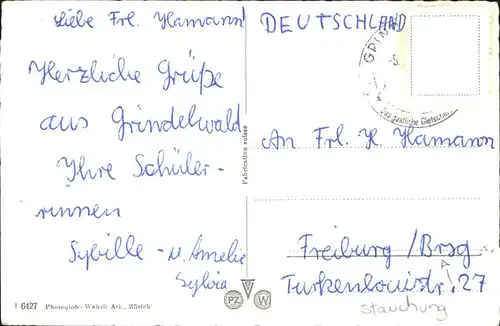 Liebe Frl. Hamann!
Herzliche Grüße
aus Grindelwald
Ihre Schüler-
innen
Sybille - u. Amelie
Sylvia
I 6427 Photoglob-Wehrli AG., Zürich
Fabrication suisse
PZ W
DEUTSCHLAND
GRIN
-5.
Das gastliche Gletscher
An Frl. H. Hamann
Freiburg /Brsg
Turkenlouisstr. 27
Stauchung